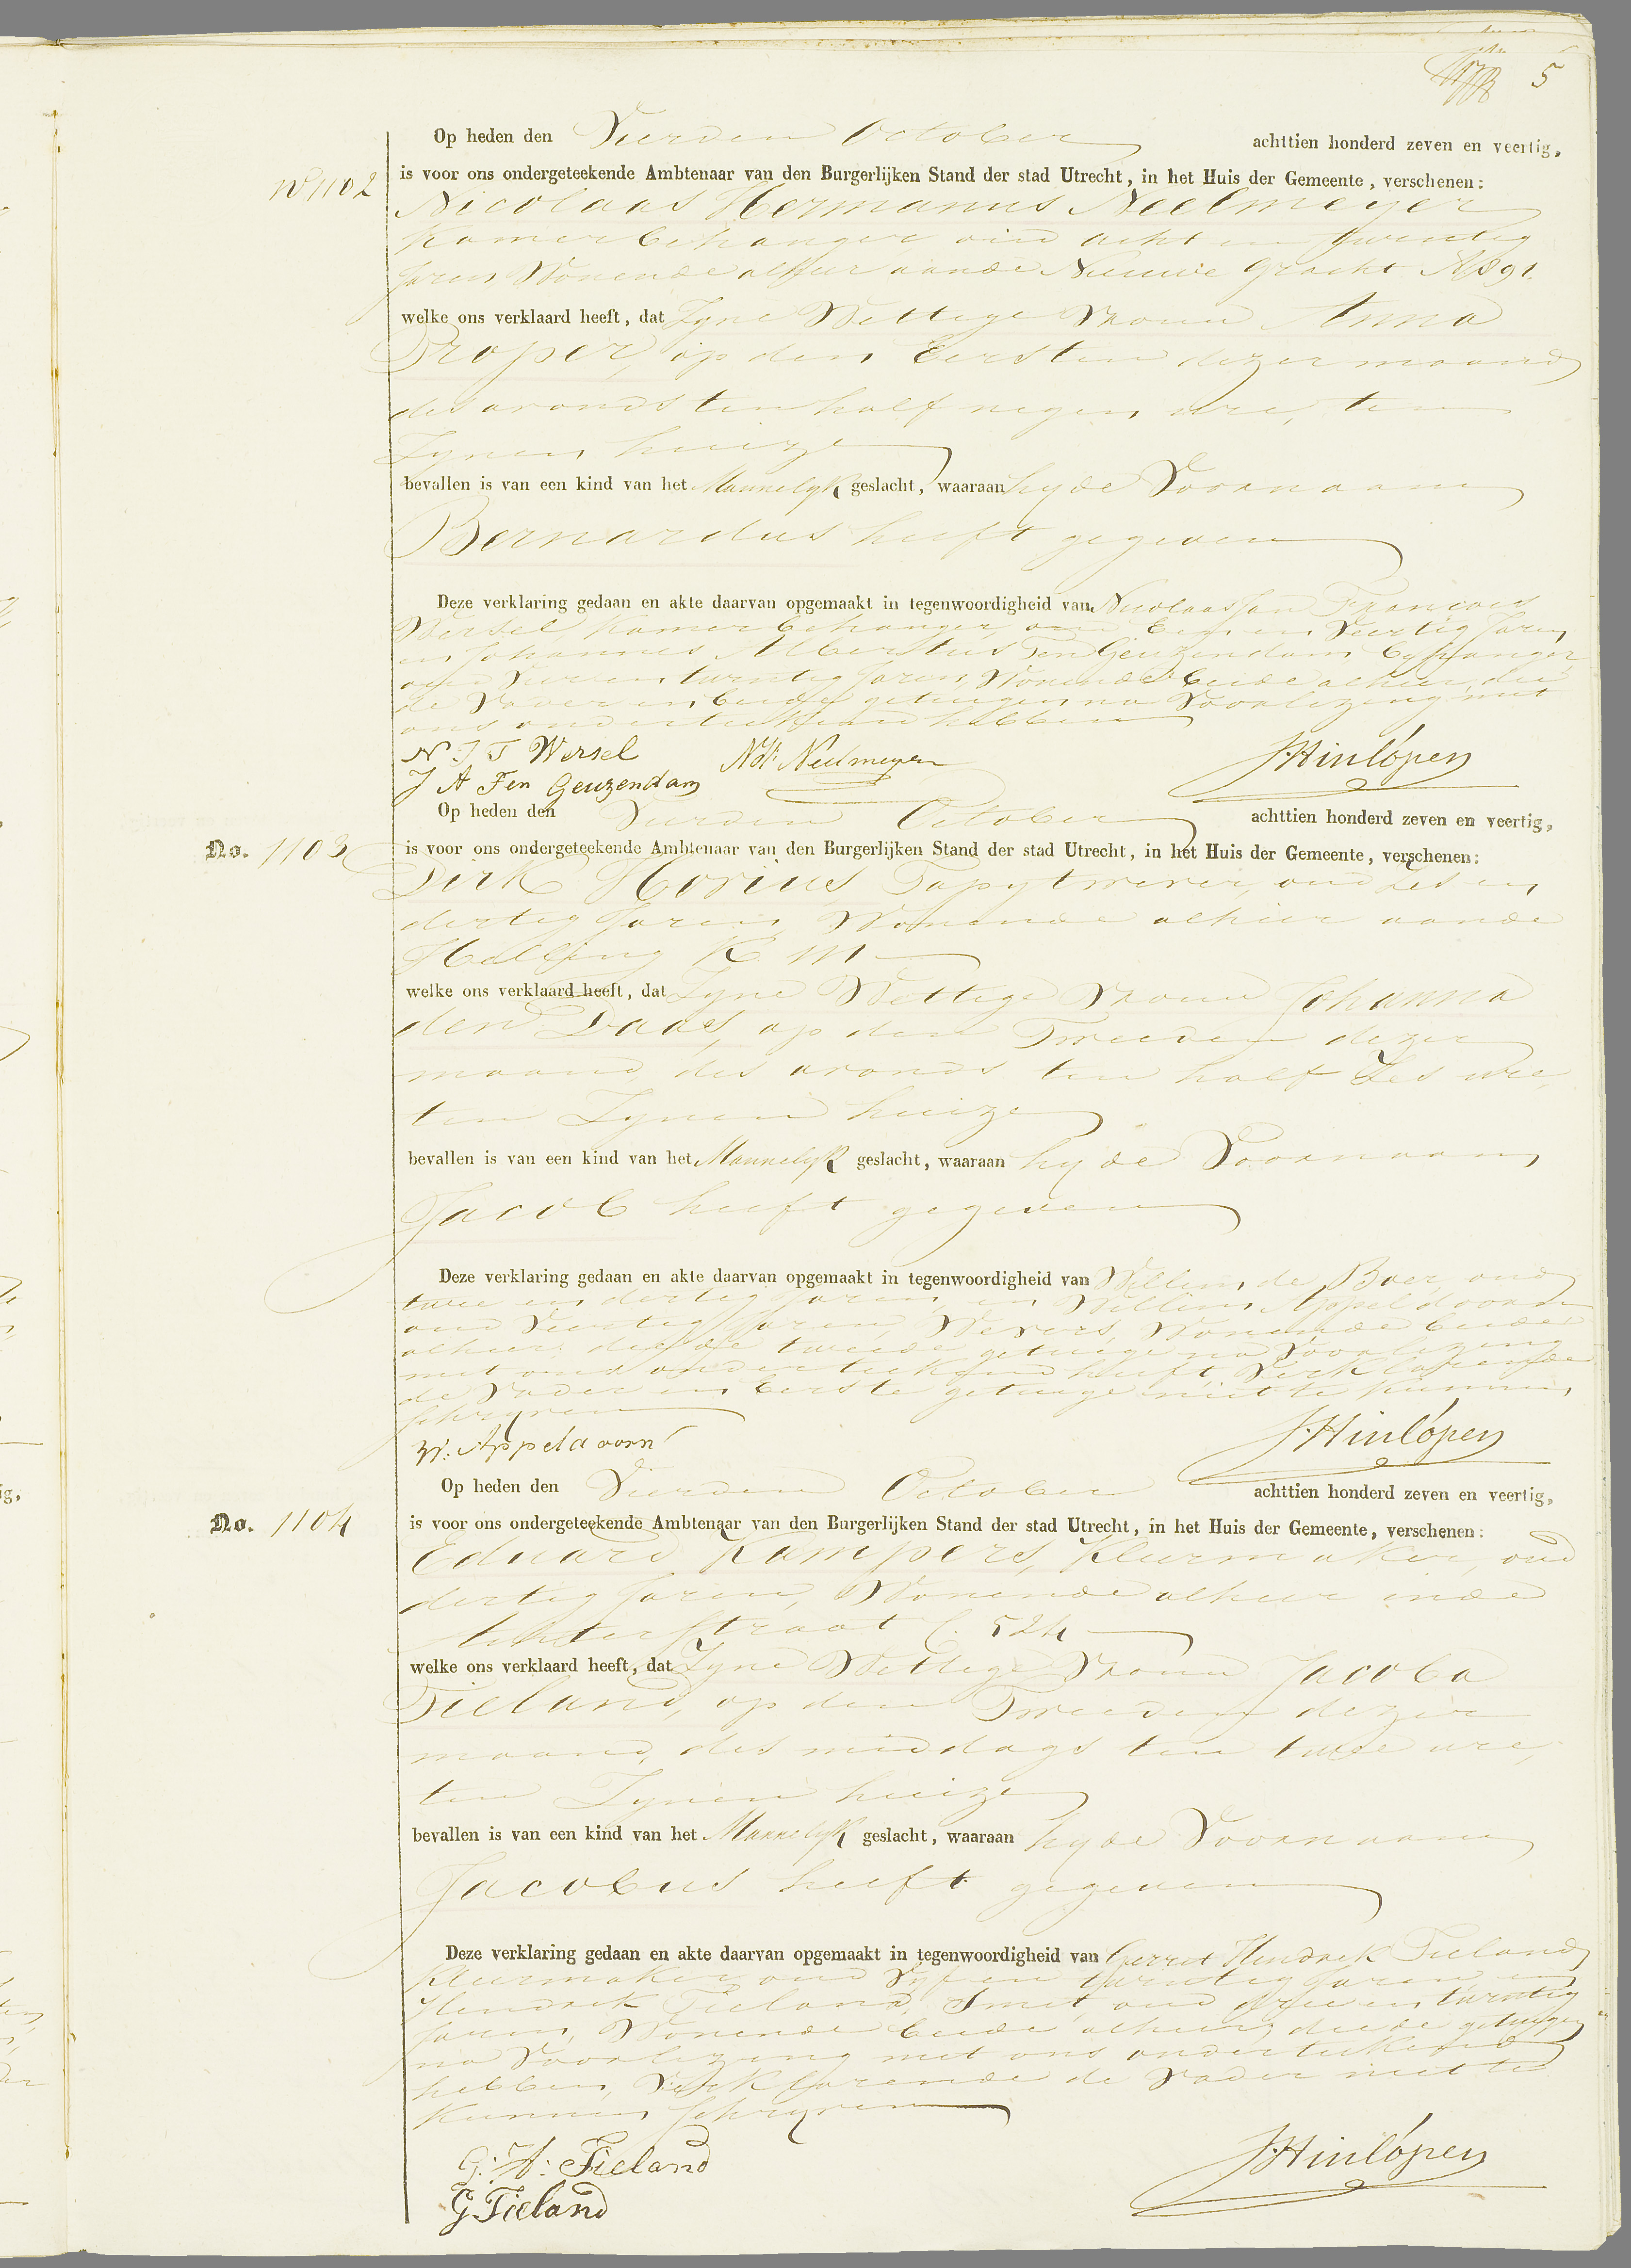 5
Op heden den Vierden October achttien honderd zeven en veertig,
No 1102
is voor ons ondergeteekende Ambtenaar van den Burgerlijken Stand der stad Utrecht, in het Huis der Gemeente, verschenen:
Nicolaas Hermanus Neelmeyer
Kamerbehanger oud acht en twintig
Jaren Wonende alhier aan de Nieuwe gracht 
welke ons verklaard heeft, dat Zyne Wettige Vrouw Anna
Proper, op den Eersten dezer maand
des avonds ten half negen ure, ten
Zynen huize
bevallen is van een kind van het Mannelyk geslacht, waaraan hy de Voornaam
Bernardus heeft gegeven
Deze verklaring gedaan en akte daarvan opgemaakt in tegenwoordigheid van Nicolaas Jan Francois
Wersel, Kamerbehanger, oud Een en Veertig Jaren
en Johannes Albertus Ten Geuzendam, Behanger
oud Vier en twintig Jaren, Wonende beide alhier, die
de Vader en beide getuigen na Voorlezing met
ons onderteekend hebben
N J F Wersel NH Neelmeyer J Hinlópen
J A Ten Geuzendam
Op heden den Vierden October achttien honderd zeven en veertig,
No. 1103
is voor ons ondergeteekende Ambtenaar van den Burgerlijken Stand der stad Utrecht, in het Huis der Gemeente, verschenen:
Dirk Hovius, Tapytwever, oud Zes en
dertig Jaren, Wonende alhier aan de
Helling K. 111
welke ons verklaard heeft, dat Zyne Wettige Vrouw Johanna
den Daas, op den Tweeden dezer
maand, des avonds ten half Zes ure,
ten Zynen huize
bevallen is van een kind van het Mannelyk geslacht, waaraan hy de Voornaam
Jacob heeft gegeven
Deze verklaring gedaan en akte daarvan opgemaakt in tegenwoordigheid van Willem de Boer, oud
twee en dertig Jaren, en Willem Appeldoorn
oud Veertig Jaren, Wevers, Wonende beide
alhier, die de tweede getuige na Voorlezing
met ons onderteekend heeft, Verklarende
de Vader en Eerste getuige niet te kunnen
schryven
W. Appeldoorn J Hinlópen
Op heden den Vierden October achttien honderd zeven en veertig,
No. 1104
is voor ons ondergeteekende Ambtenaar van den Burgerlijken Stand der stad Utrecht, in het Huis der Gemeente, verschenen:
Eduard Kampers, Kleermaker, oud
dertig Jaren, Wonende alhier in de
Achterstraat C. 524
welke ons verklaard heeft, dat Zyne Wettige Vrouw Jacoba
Tieland, op den Tweeden dezer
maand, des middags ten twee ure,
ten Zynen huize
bevallen is van een kind van het Mannelyk geslacht, waaraan hy de Voornaam
Jacobus heeft gegeven
Deze verklaring gedaan en akte daarvan opgemaakt in tegenwoordigheid van Gerrit Hendrik Tieland
Kleermaker, oud Vyf en twintig Jaren en
Hendrik Tieland, Smit, oud drie en twintig
Jaren, Wonende beide alhier, die de getuigen
na Voorlezing met ons onderteekend
hebben, Verklarende de Vader niet te
kunnen schryven
G: H: Tieland J Hinlópen
G Tieland